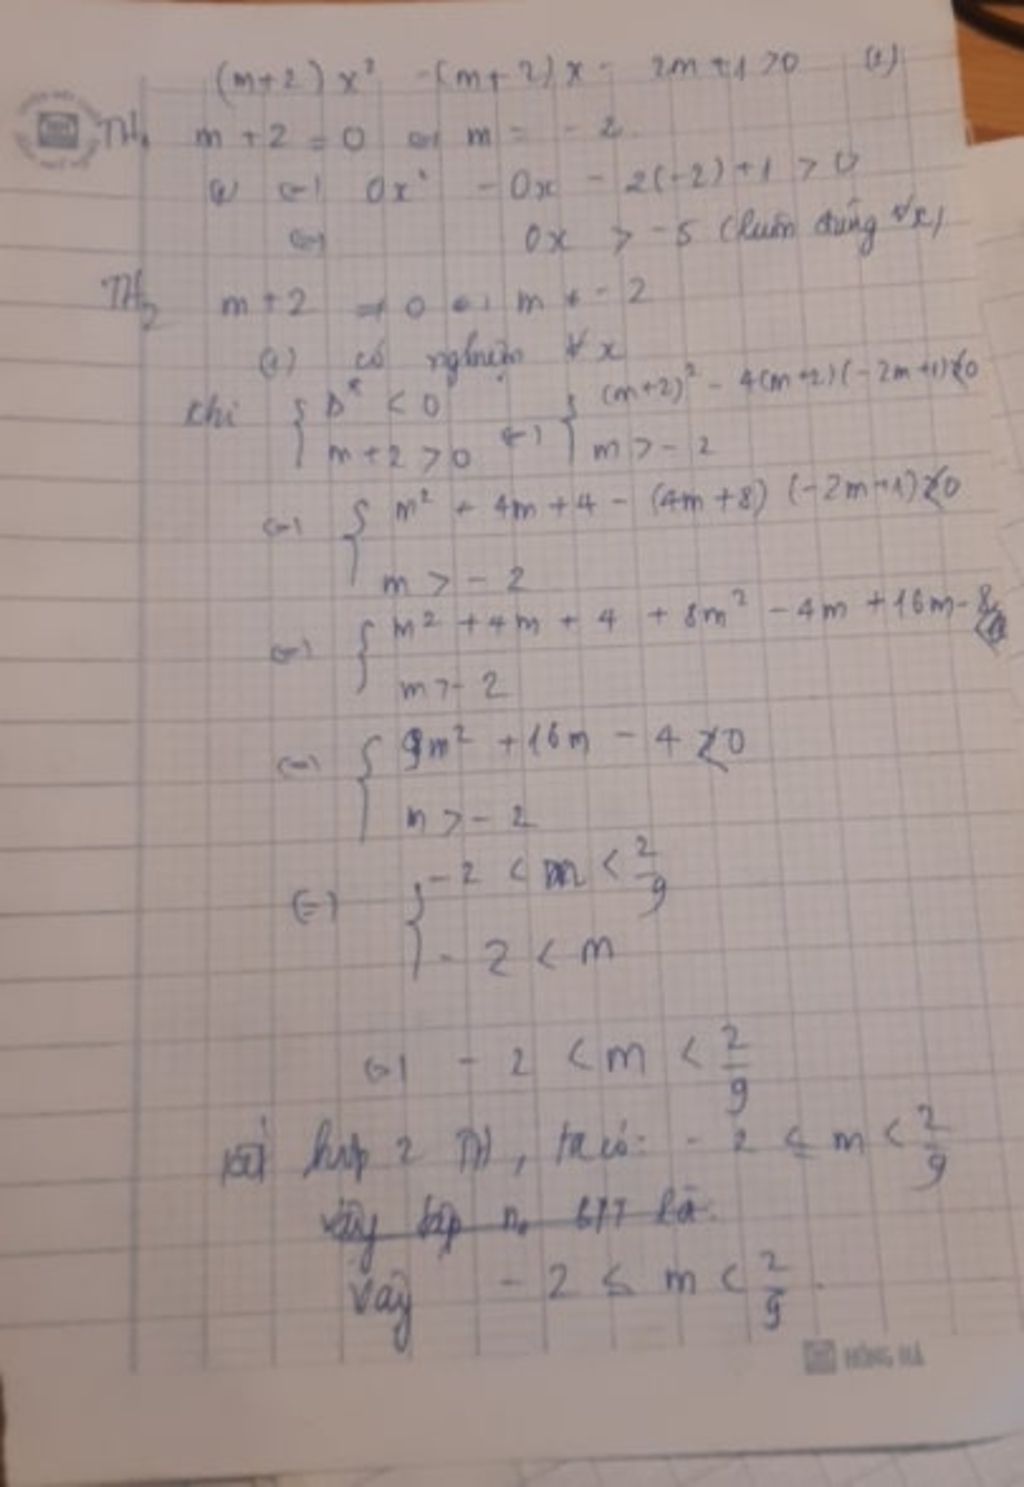 (m+2)x² -(m+2)x - 2m+1 >0 (1)
TH₁ m+2=0 ⇔ m = -2
(1) ⇔ 0x² - 0x - 2(-2)+1 > 0
⇔ 0x > -5 (luôn đúng ∀x)
TH₂ m+2 ≠ 0 ⇔ m ≠ -2
(1) có nghiệm ∀x
khi { Δ < 0 ⇔ { (m+2)² - 4(m+2)(-2m+1)<0
m+2 >0 m > -2
⇔ { m² + 4m+4 - (4m+8)(-2m+1)<0
m > -2
⇔ { m² +4m + 4 + 8m² - 4m +16m-8<0
m > -2
⇔ { 9m² +16m - 4 <0
m > -2
⇔ { -2 < m < 2/9
-2 < m
⇔ -2 < m < 2/9
kết hợp 2 TH, ta có: -2 ≤ m < 2/9
Vậy tập n₀ BPT là:
Vậy -2 ≤ m < 2/9.
HỒNG HÀ